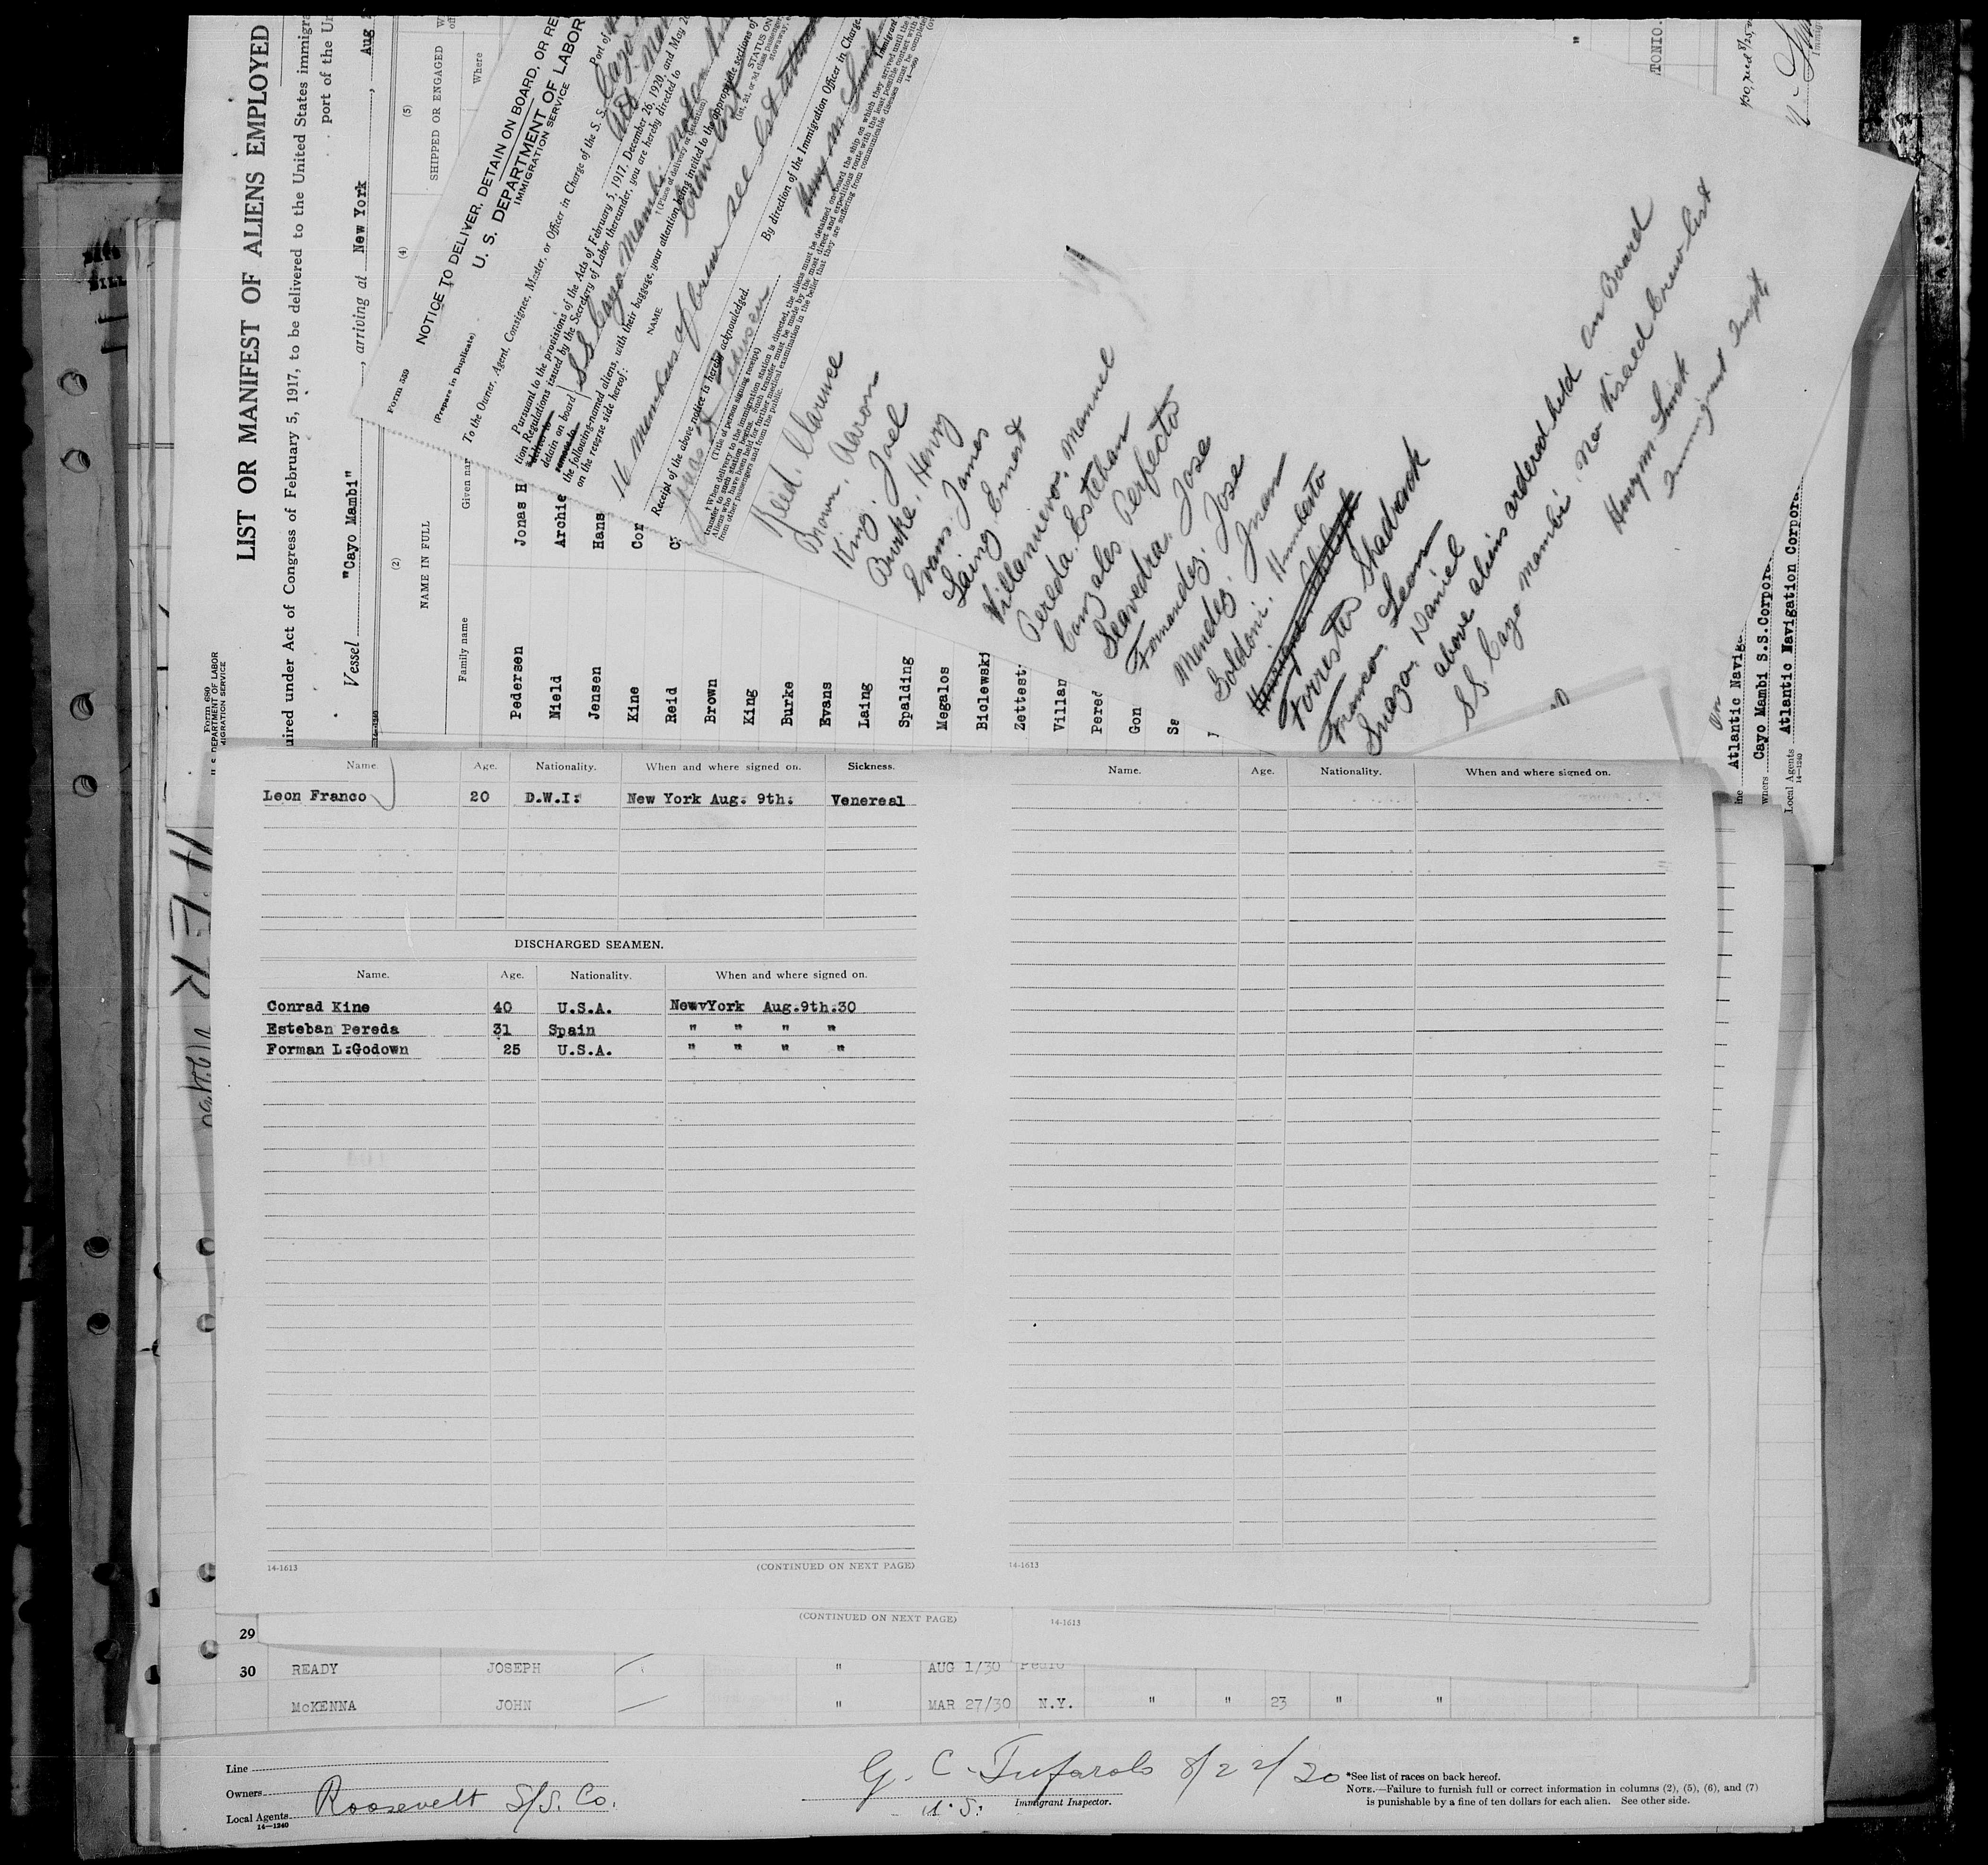 LIST OR MANIFEST OF ALIENS EMPLOYED
uired under Act of Congress of February 5, 1917, to be delivered to the United States immigra
port of the Un
Vessel "Cayo Mambi", arriving at New York, Aug
Form 680
U. S. DEPARTMENT OF LABOR
MIGRATION SERVICE
(2)
NAME IN FULL
Family name
Given nar
(4)
(5)
SHIPPED OR ENGAGED
Where
Pedersen Jonas H
Nield Archie
Jensen Hans
Kine Con
Reid
Brown
King
Burke
Evans
Laing
Spalding
Megalos
Biclewski
Zettest
Villan
Pered
Gon
Form 559
(Prepare in Duplicate)
NOTICE TO DELIVER, DETAIN ON BOARD, OR RE
U. S. DEPARTMENT OF LABOR
IMMIGRATION SERVICE
Port of
To the Owner, Agent, Consignee, Master, or Officer in Charge of the S. S. Cayo
Pursuant to the provisions of the Acts of February 5, 1917, December 26, 1920, and May 26
tion Regulations issued by the Secretary of Labor thereunder, you are hereby directed to
deliver to
detain on board S S Cayo Mambi
remove to
(Place of delivery or detention)
the following-named aliens, with their baggage, your attention being invited to the appropriate sections of
on the reverse side hereof:
NAME
STATUS ON
16 members of Crew see list
Receipt of the above notice is hereby acknowledged.
(Title of person signing receipt)
By direction of the Immigration Officer in Charge.
Henry M. Smick
Immigrant
14—960
Reed, Clarence
Brown, Aaron
King, Joel
Burke, Henry
Evans James
Laing Ernest
Villanuevo, Manuel
Pereda, Estehan
Gonzales Perfecto
Seavedra, Jose
Fernandez, Jose
Mendez, Juan
Goldoni, Humberto
Forrester Shadrack
Franco, Leon
Snaza, Daniel
above aliens ordered held on Board
SS. Cayo Mambi. No Visaed Crew list
Henry M. Smick
Immigrant Inspt.
TONIO.
Atlantic Navig
Cayo Mambi S.S.Corpor
wners
Local Agents Atlantic Navigation Corpora
14—1240
Name. Age. Nationality. When and where signed on. Sickness.
Leon Franco 20 D.W.I: New York Aug: 9th: Venereal
DISCHARGED SEAMEN.
Name. Age. Nationality. When and where signed on.
Conrad Kine 40 U.S.A. NewvYork Aug.9th:30
Esteban Pereda 31 Spain " " " "
Forman L:Godown 25 U.S.A. " " " "
14-1613 (CONTINUED ON NEXT PAGE)
Name. Age. Nationality. When and where signed on.
14-1613
(CONTINUED ON NEXT PAGE) 14-1613
29
30 READY JOSEPH " AUG 1/30 Pedro
McKENNA JOHN " MAR 27/30 N.Y. " " 23 " "
Line
Owners
Local Agents Roosevelt S/S. Co.
14—1240
G. C. Tufarolo 8/22/30
U.S. Immigrant Inspector.
*See list of races on back hereof.
NOTE.—Failure to furnish full or correct information in columns (2), (5), (6), and (7)
is punishable by a fine of ten dollars for each alien. See other side.